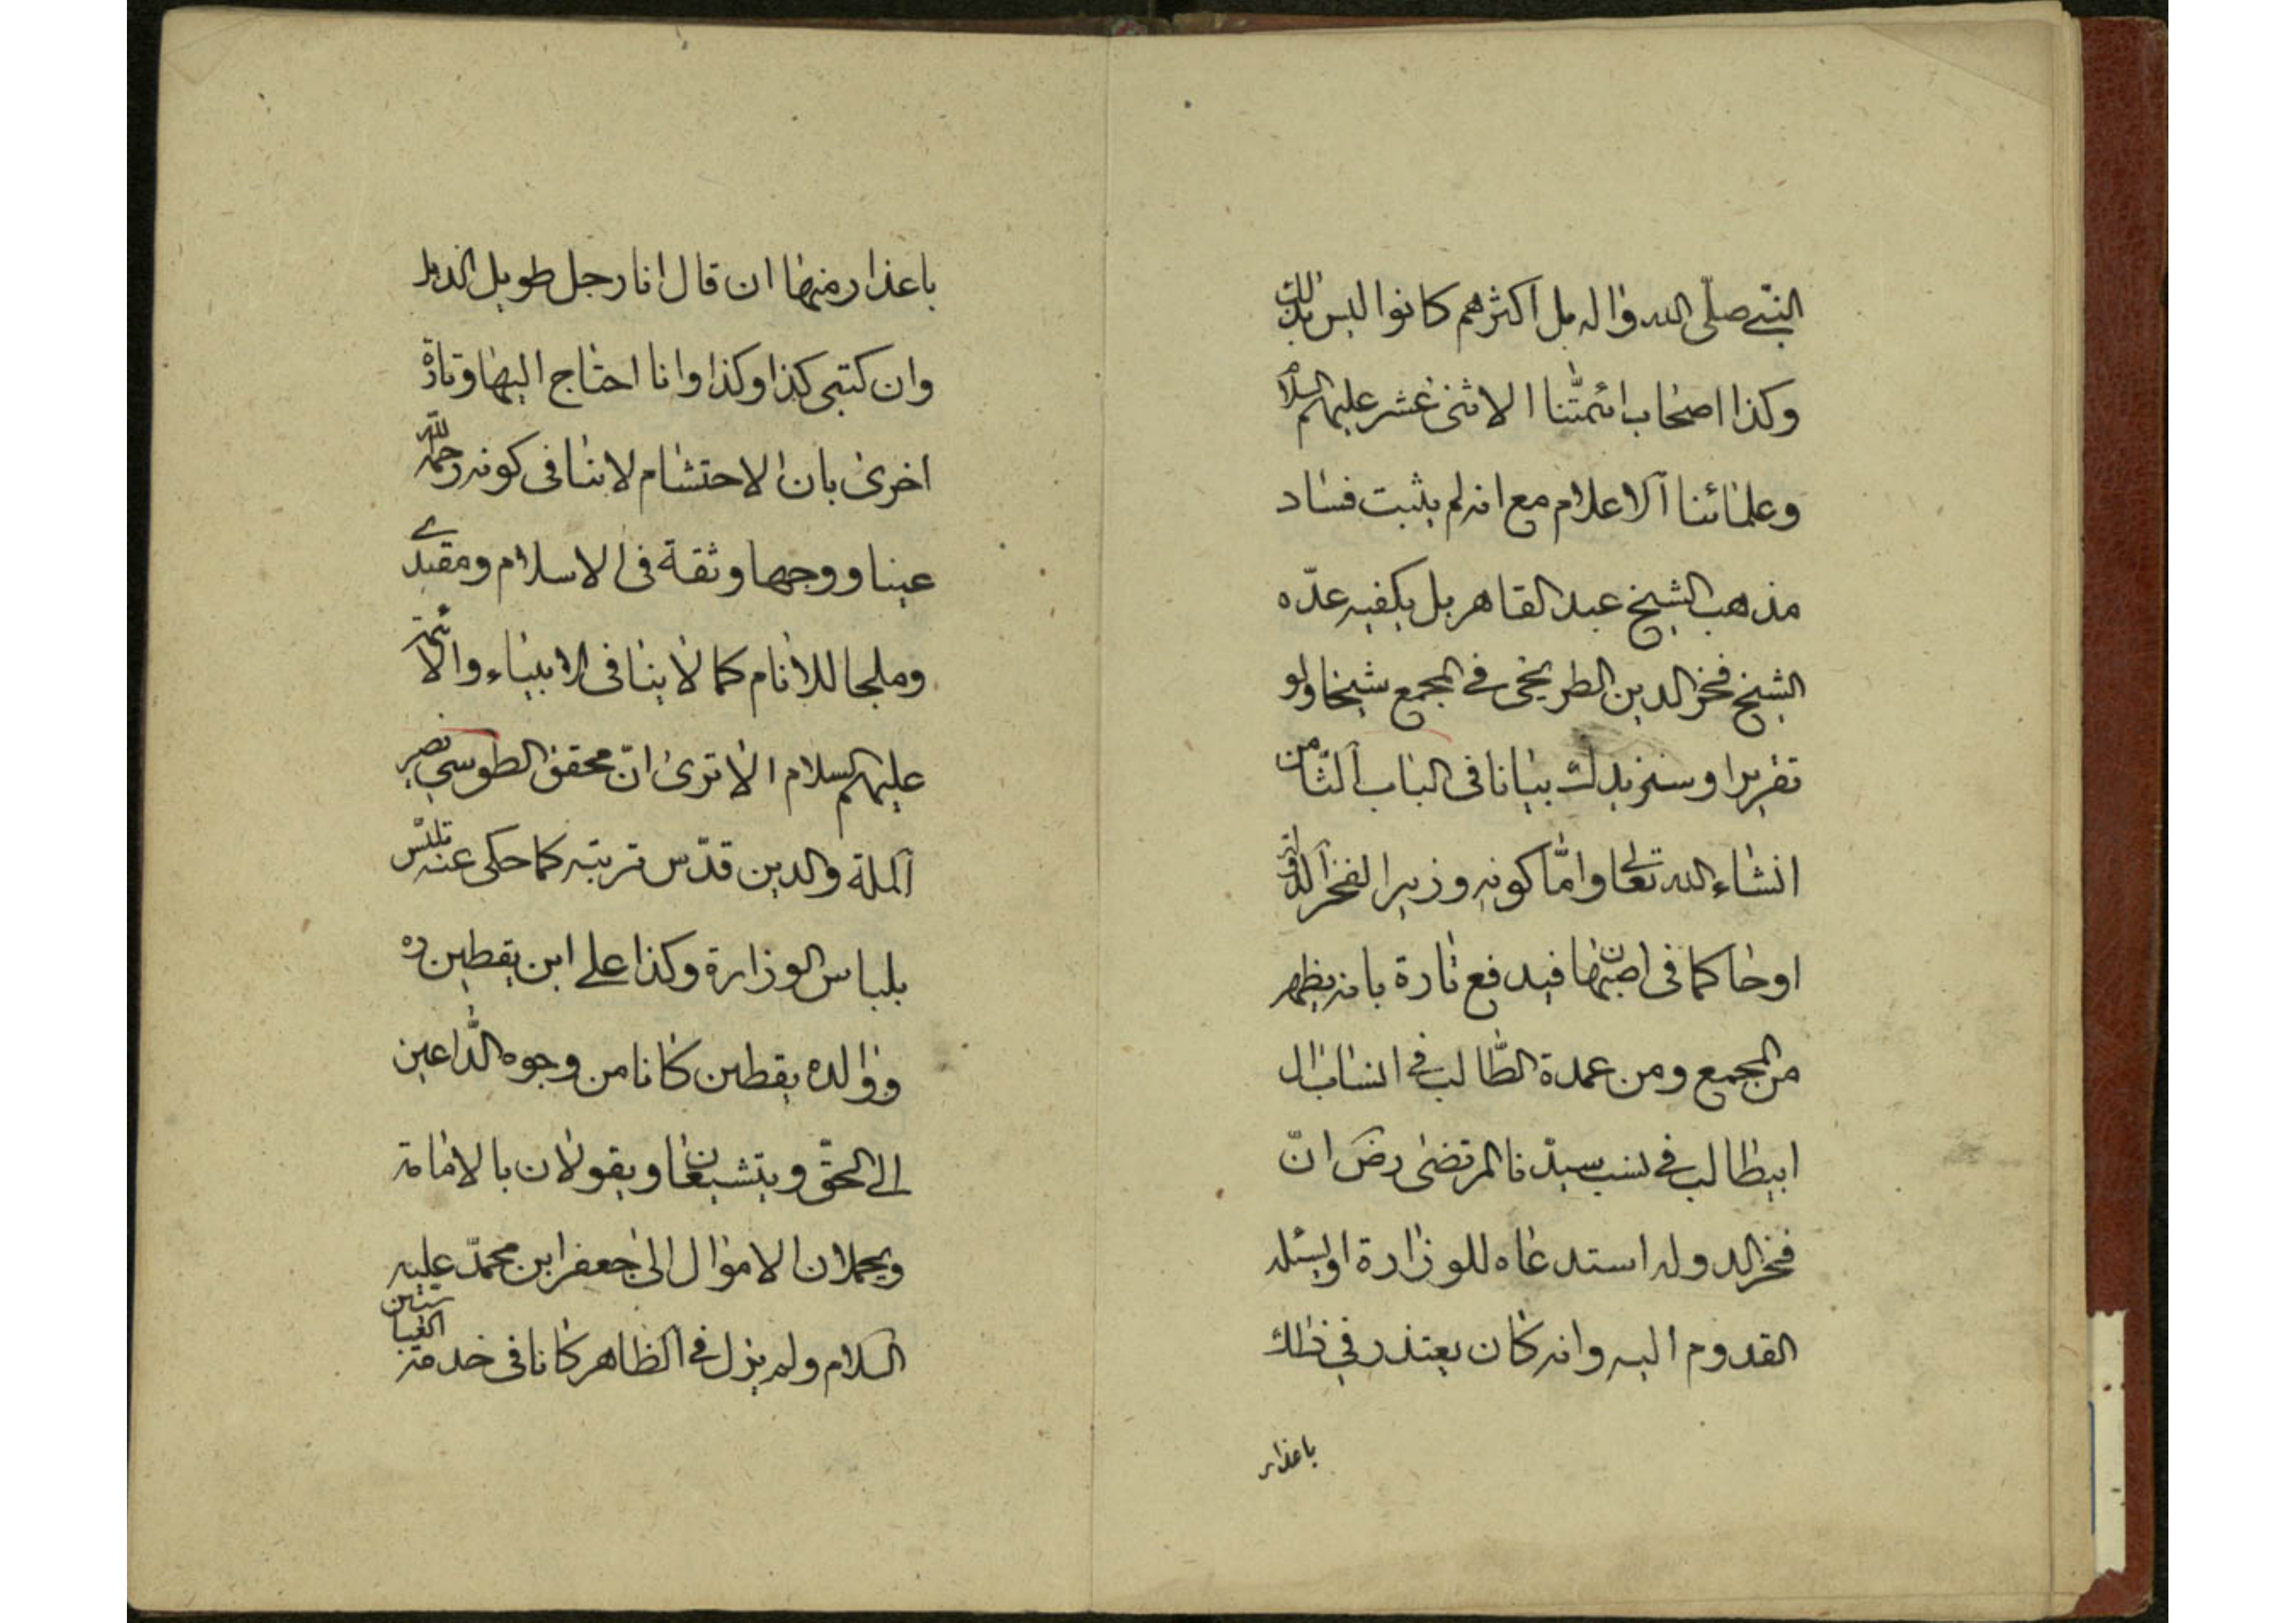 النبي صلى الله واله بل اكثرهم كانوا البس بذلك
وكذا اصحاب ائمتنا الاثنى عشر عليهم السلام
وعلمائنا الاعلام مع انه لم يثبت فساد
مذهب الشيخ عبد القاهر بل يكفيه عده
الشيخ فخر الدين الطريحى فى المجمع شيخا ولو
تقريرا وسنزيدك بيانا فى الباب الثامن
انشاء الله تعالى واما كونه وزيرا لفخر الدولة
اوحاكما فى اصبهان فيدفع تارة بانه يظهر
من المجمع ومن عمدة الطالب فى انساب ال
ابيطالب فى نسب سيدنا المرتضى رض ان
فخر الدوله استدعاه للوزارة او يسئله
القدوم اليه وانه كان يعتذر فى ذلك
باعذار
باعذار منها ان قال انا رجل طويل الذيل
وان كتبى كذا وكذا وانا احتاج اليها وتارة
اخرى بان الاحتشام لا ينافى كونه رحمه الله
عينا ووجها وثقة فى الاسلام ومقتدى
وملجا للانام كما لا ينافى الانبياء والائمة
عليهم السلام الا ترى ان محقق الطوسي نصير
الملة والدين قدس تربته كما حكى عنه تلبس
بلباس الوزارة وكذا على ابن يقطين ره
ووالده يقطين كانا من وجوه الداعين
الى الحق ويتشيعان ويقولان بالامامة
ويحملان الاموال الى جعفر ابن محمد عليه
السلام ولم يزل فى الظاهر كانا فى خدمة